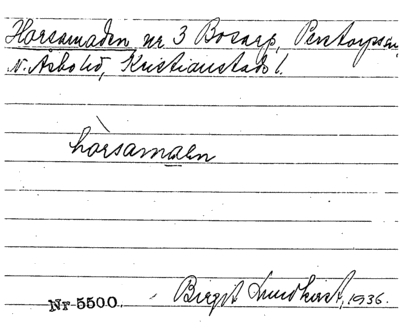 Horsamaden nr 3 Bosarp, Perstorps sn,
N. Åsbo hd, Kristianstads l.
hòrsamaen
Nr 5500. Birgit Lundkvist, 1936.